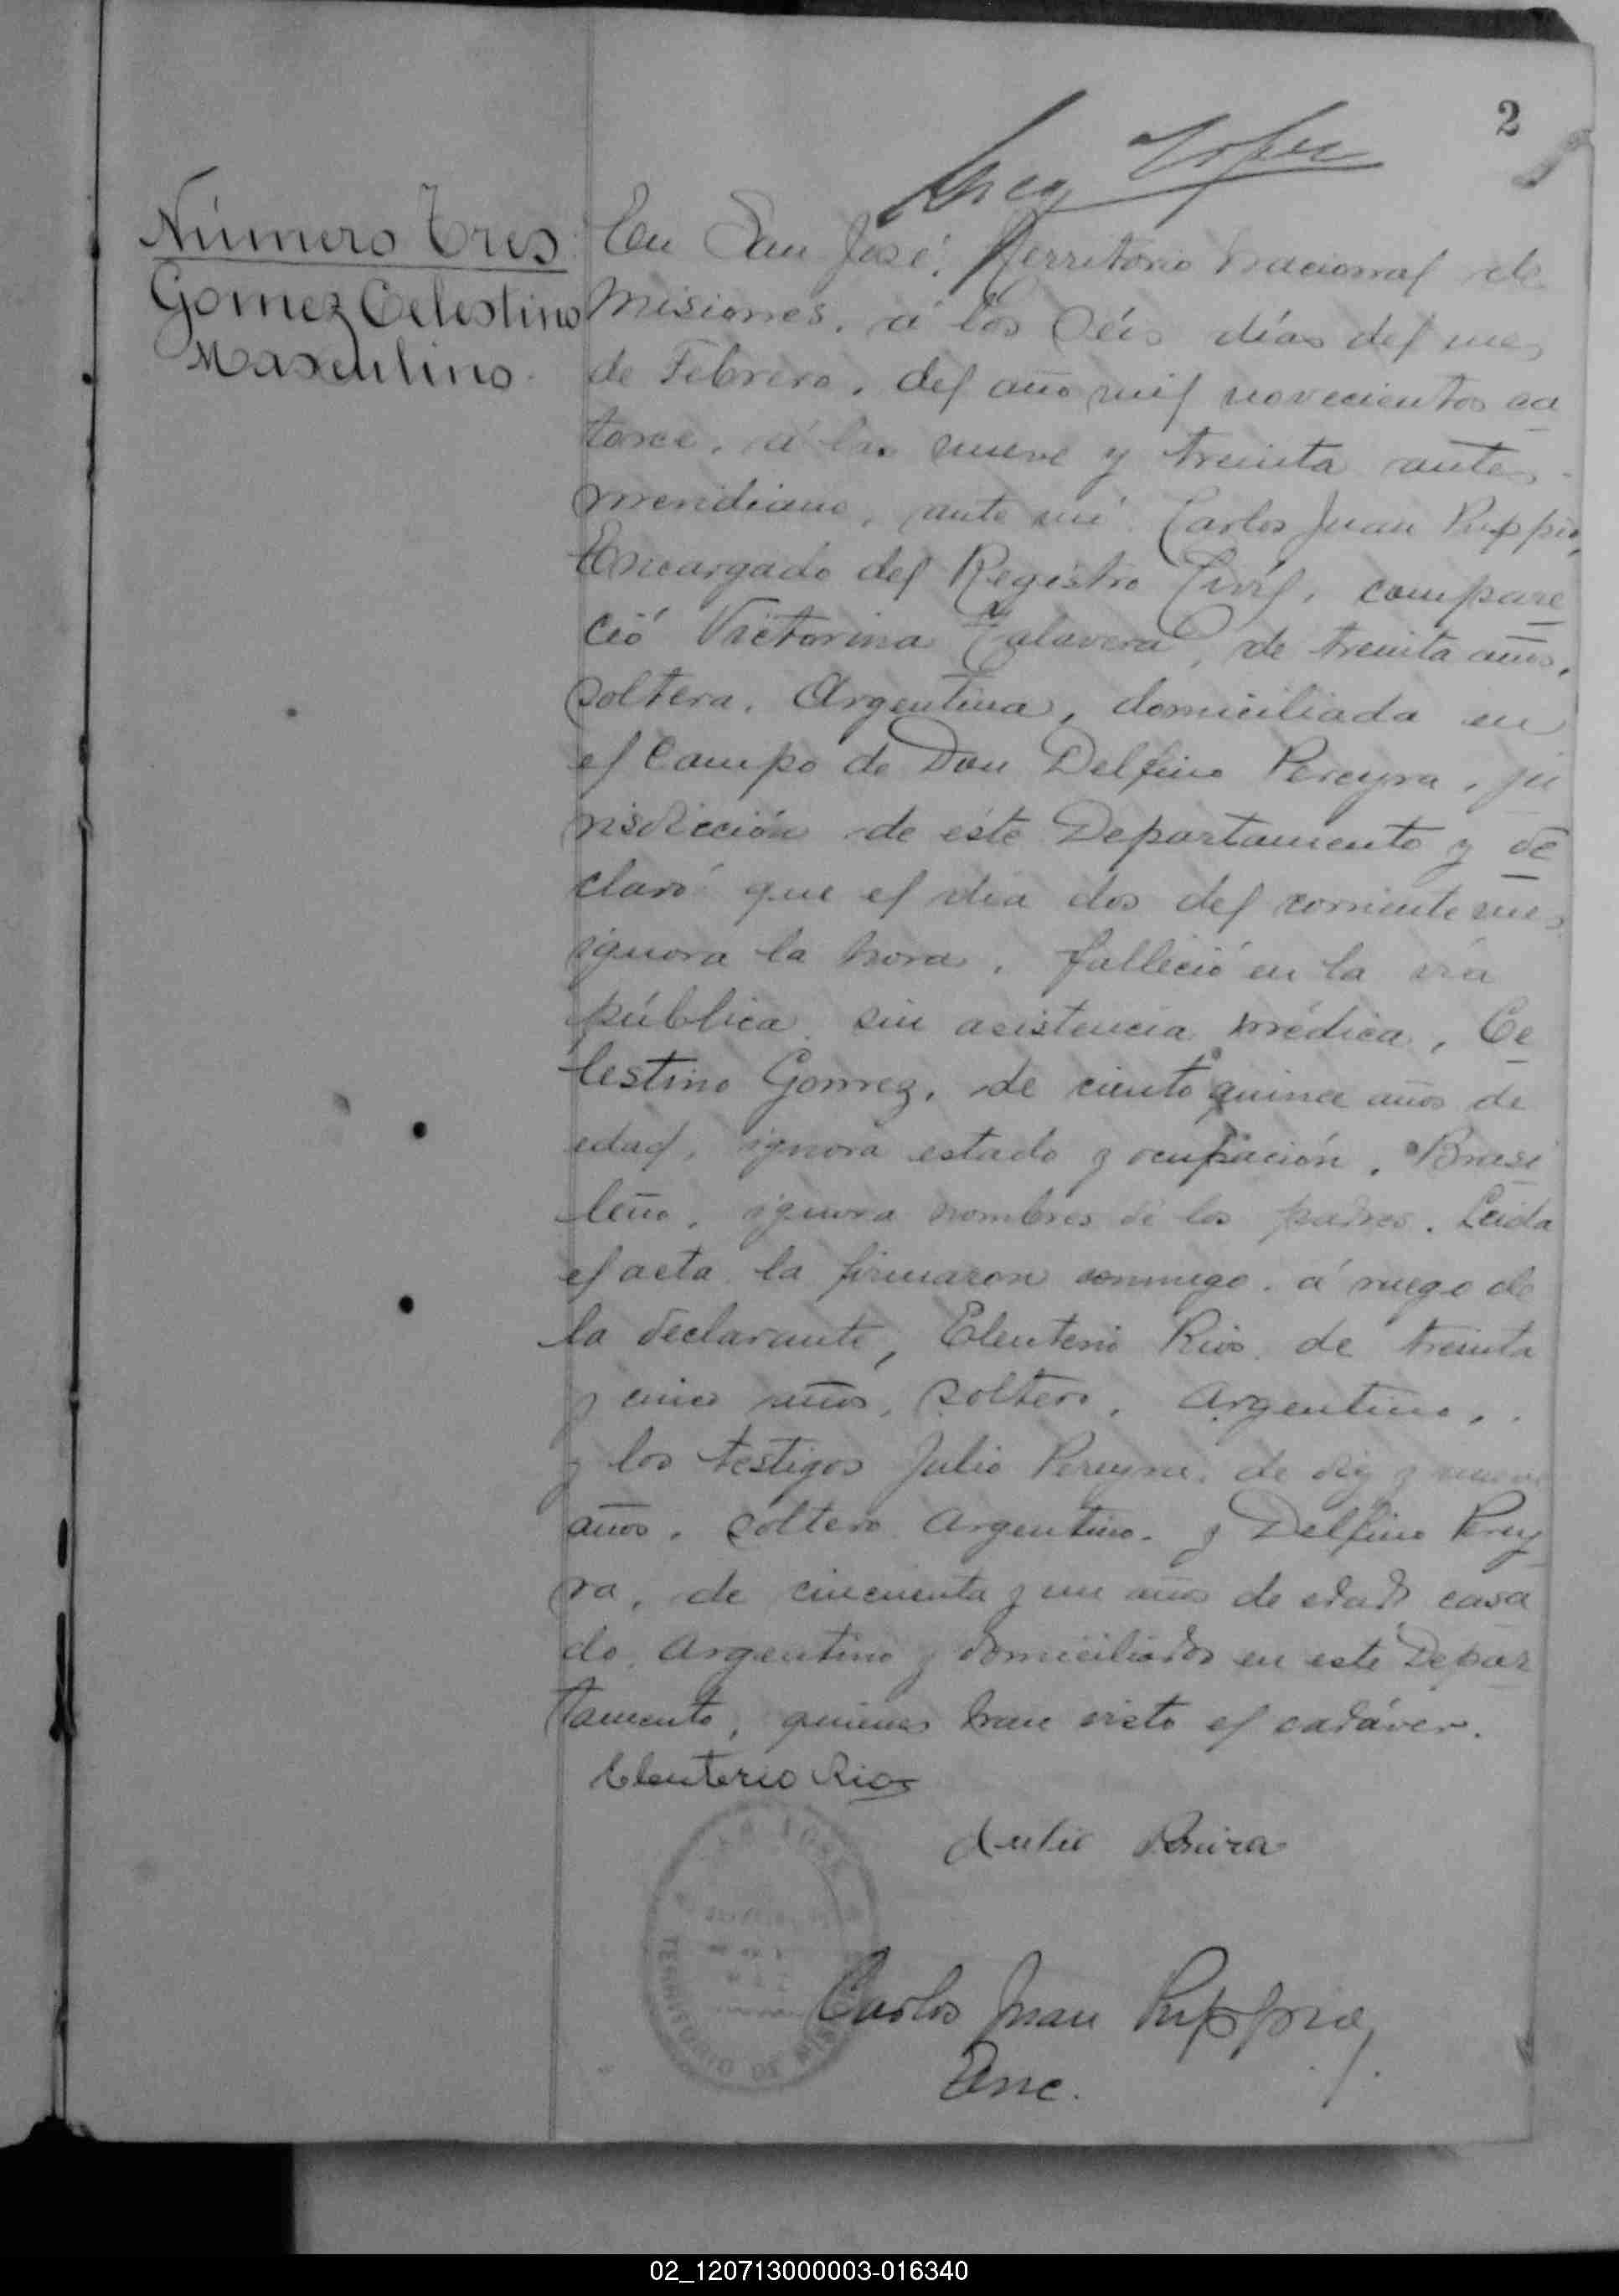 2
Número Tres
Gomez Celestino
Masculino
En San José, Territorio Nacional de
Misiones, á los Séis días del mes
de Febrero, del año mil novecientos ca
torce, á las nueve y treinta antes
meridiano, ante mi Carlos Juan Puppio,
Encargado del Registro Civil, compare
ció Victorina Talavera, de treinta años,
soltera, Argentina, domiciliada en
el Campo de Don Delfino Pereyra, ju
risdicción de éste Departamento y de
claró que el día dos del corriente mes
ignora la hora, falleció en la vía
pública sin asistencia médica, Ce
lestino Gomez, de ciento quince años de
edad, ignora estado y ocupación, Brasi
leño, ignora nombres de los padres. Leida
el acta la firmaron conmigo, á ruego de
la declarante, Eleuterio Rios, de treinta
y cinco años, soltero, Argentino,
y los testigos Julio Pereyra, de diez y nueve
años, soltero Argentino, y Delfino Perey
ra, de cincuenta y un años de edad casa
do, Argentino y domiciliados en este Depar
tamento, quienes han visto el cadáver.
Eleuterio Rios
Julio Pereira
Carlos Juan Puppio
Enc.
TERRITORIO DE MISIONES
02_120713000003-016340